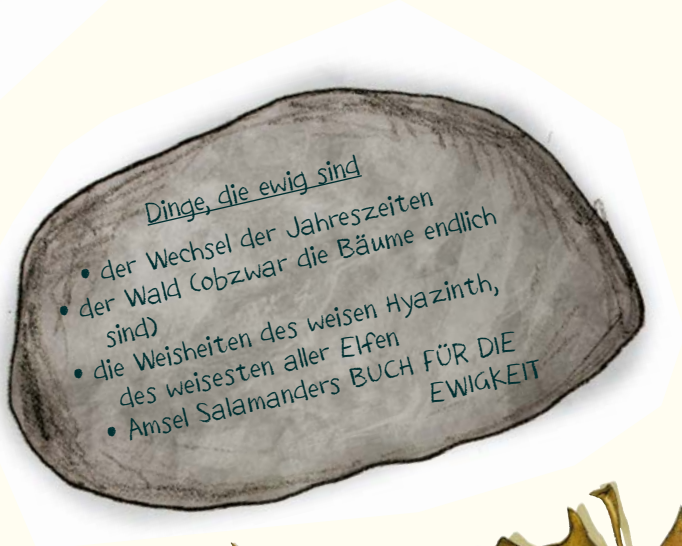 Dinge, die ewig sind
• der Wechsel der Jahreszeiten
• der Wald (obzwar die Bäume endlich
sind)
• die Weisheiten des weisen Hyazinth,
des weisesten aller Elfen
• Amsel Salamanders BUCH FÜR DIE
EWIGKEIT